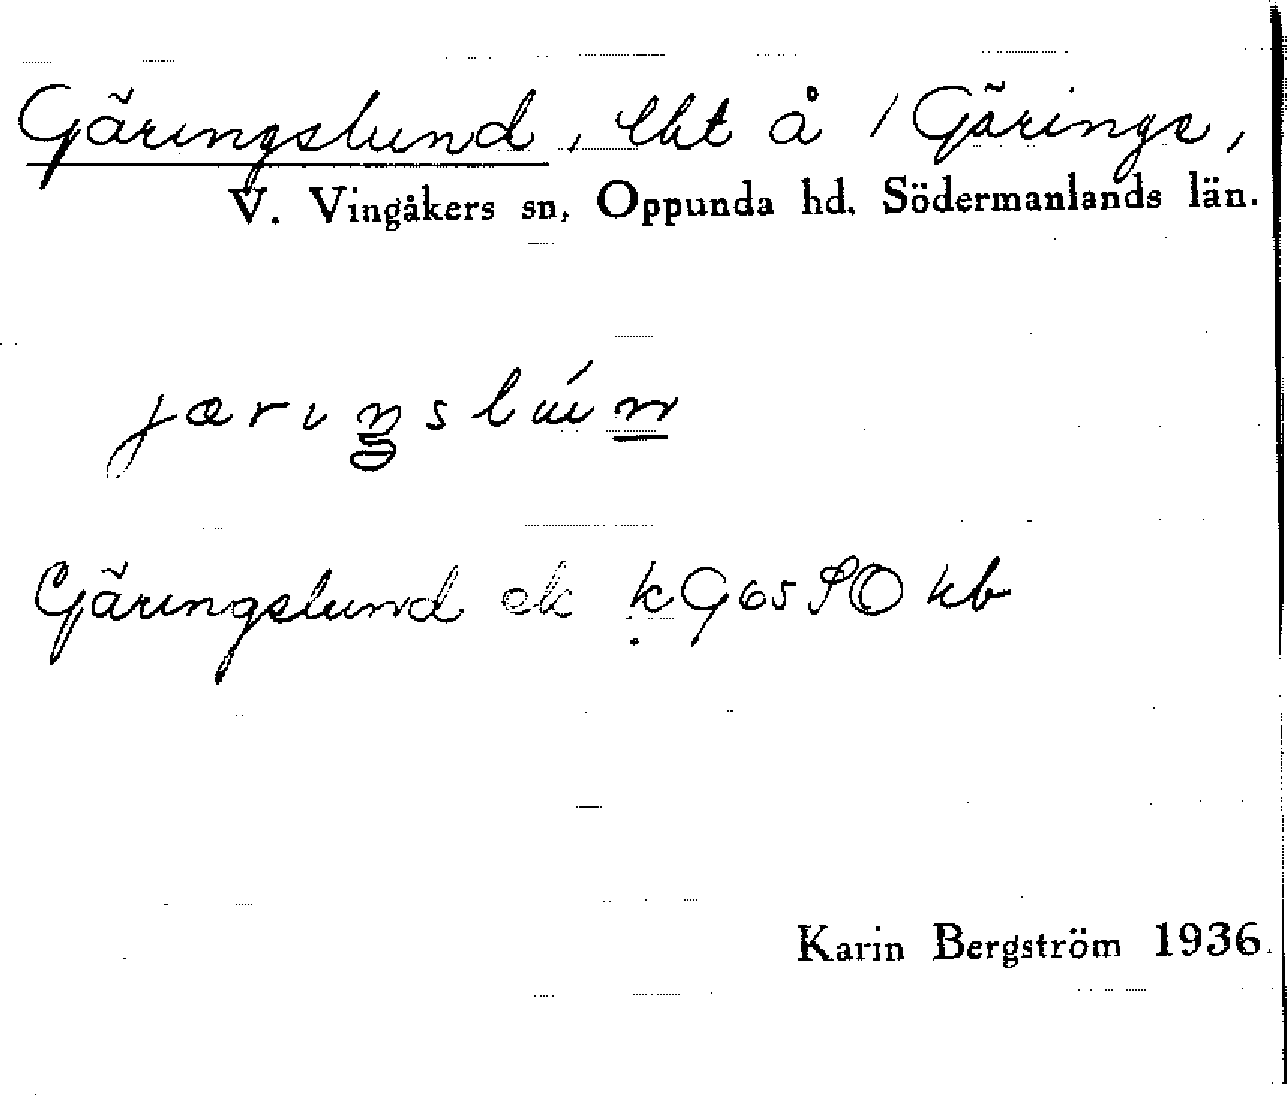 Gäringslund, lht å 1 Gärings,
V. Vingåkers sn, Oppunda hd. Södermanlands län.
Gäringslund ek kG65SO kb
Karin Bergström 1936